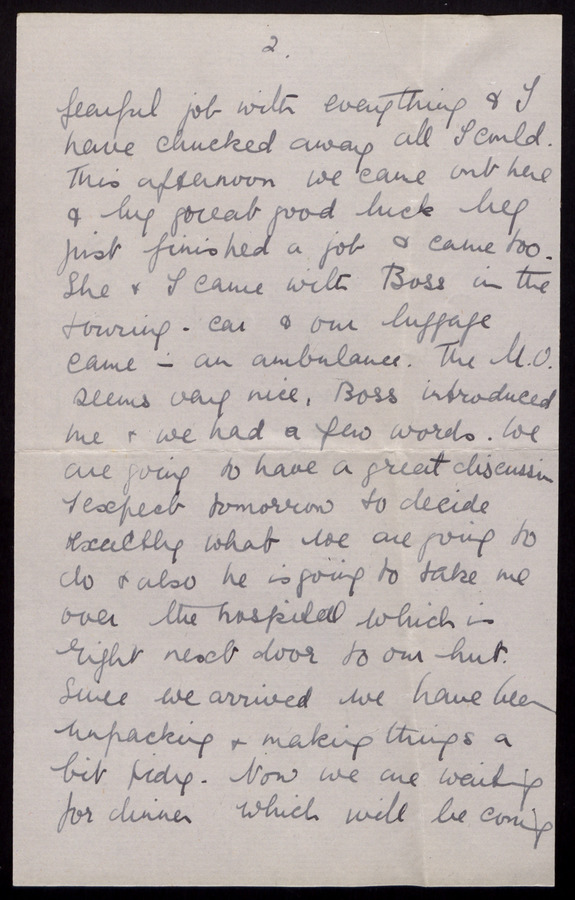 2.
fearful job with everything & I
have chucked away all I could.
This afternoon we came out here
& by great good luck Meg
just finished a job & came too.
She & I came with Boss in the
touring-car & our luggage
came in an ambulance. The M.O.
seems very nice, Boss introduced
me & we had a few words. We
are going to have a great discussion
I expect tomorrow to decide
exactly what we are going to
do & also he is going to take me
over the hospital which is
right next door to our hut.
Since we arrived we have been
unpacking & making things a
bit tidy. Now we are waiting
for dinner which will be coming